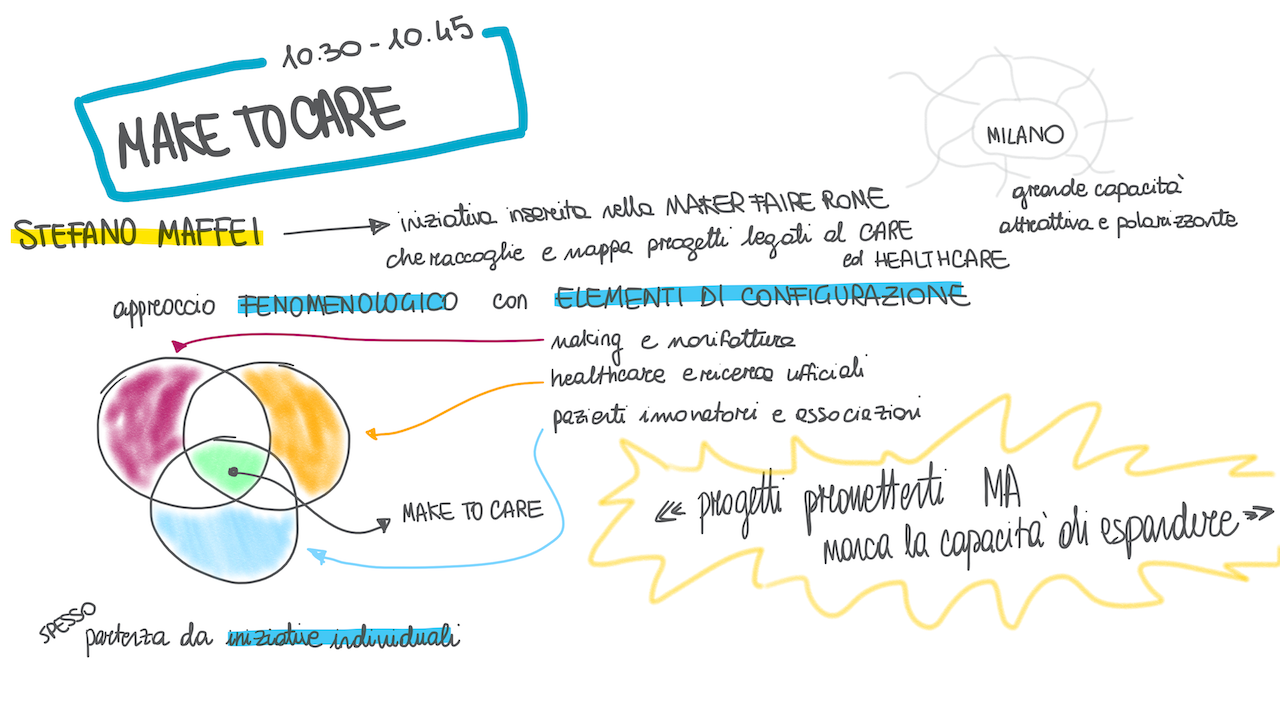 10.30 - 10.45
MAKE TO CARE
MILANO
grande capacità
attrattiva e polarizzante
STEFANO MAFFEI
iniziativa inserita nella MAKER FAIRE ROME
che raccoglie e mappa progetti legati al CARE
ed HEALTHCARE
approccio FENOMENOLOGICO con ELEMENTI DI CONFIGURAZIONE
making e manifattura
healthcare e ricerca ufficiali
pazienti innovatori e associazioni
MAKE TO CARE
« progetti promettenti MA
manca la capacità di espandere »
SPESSO
partenza da iniziative individuali